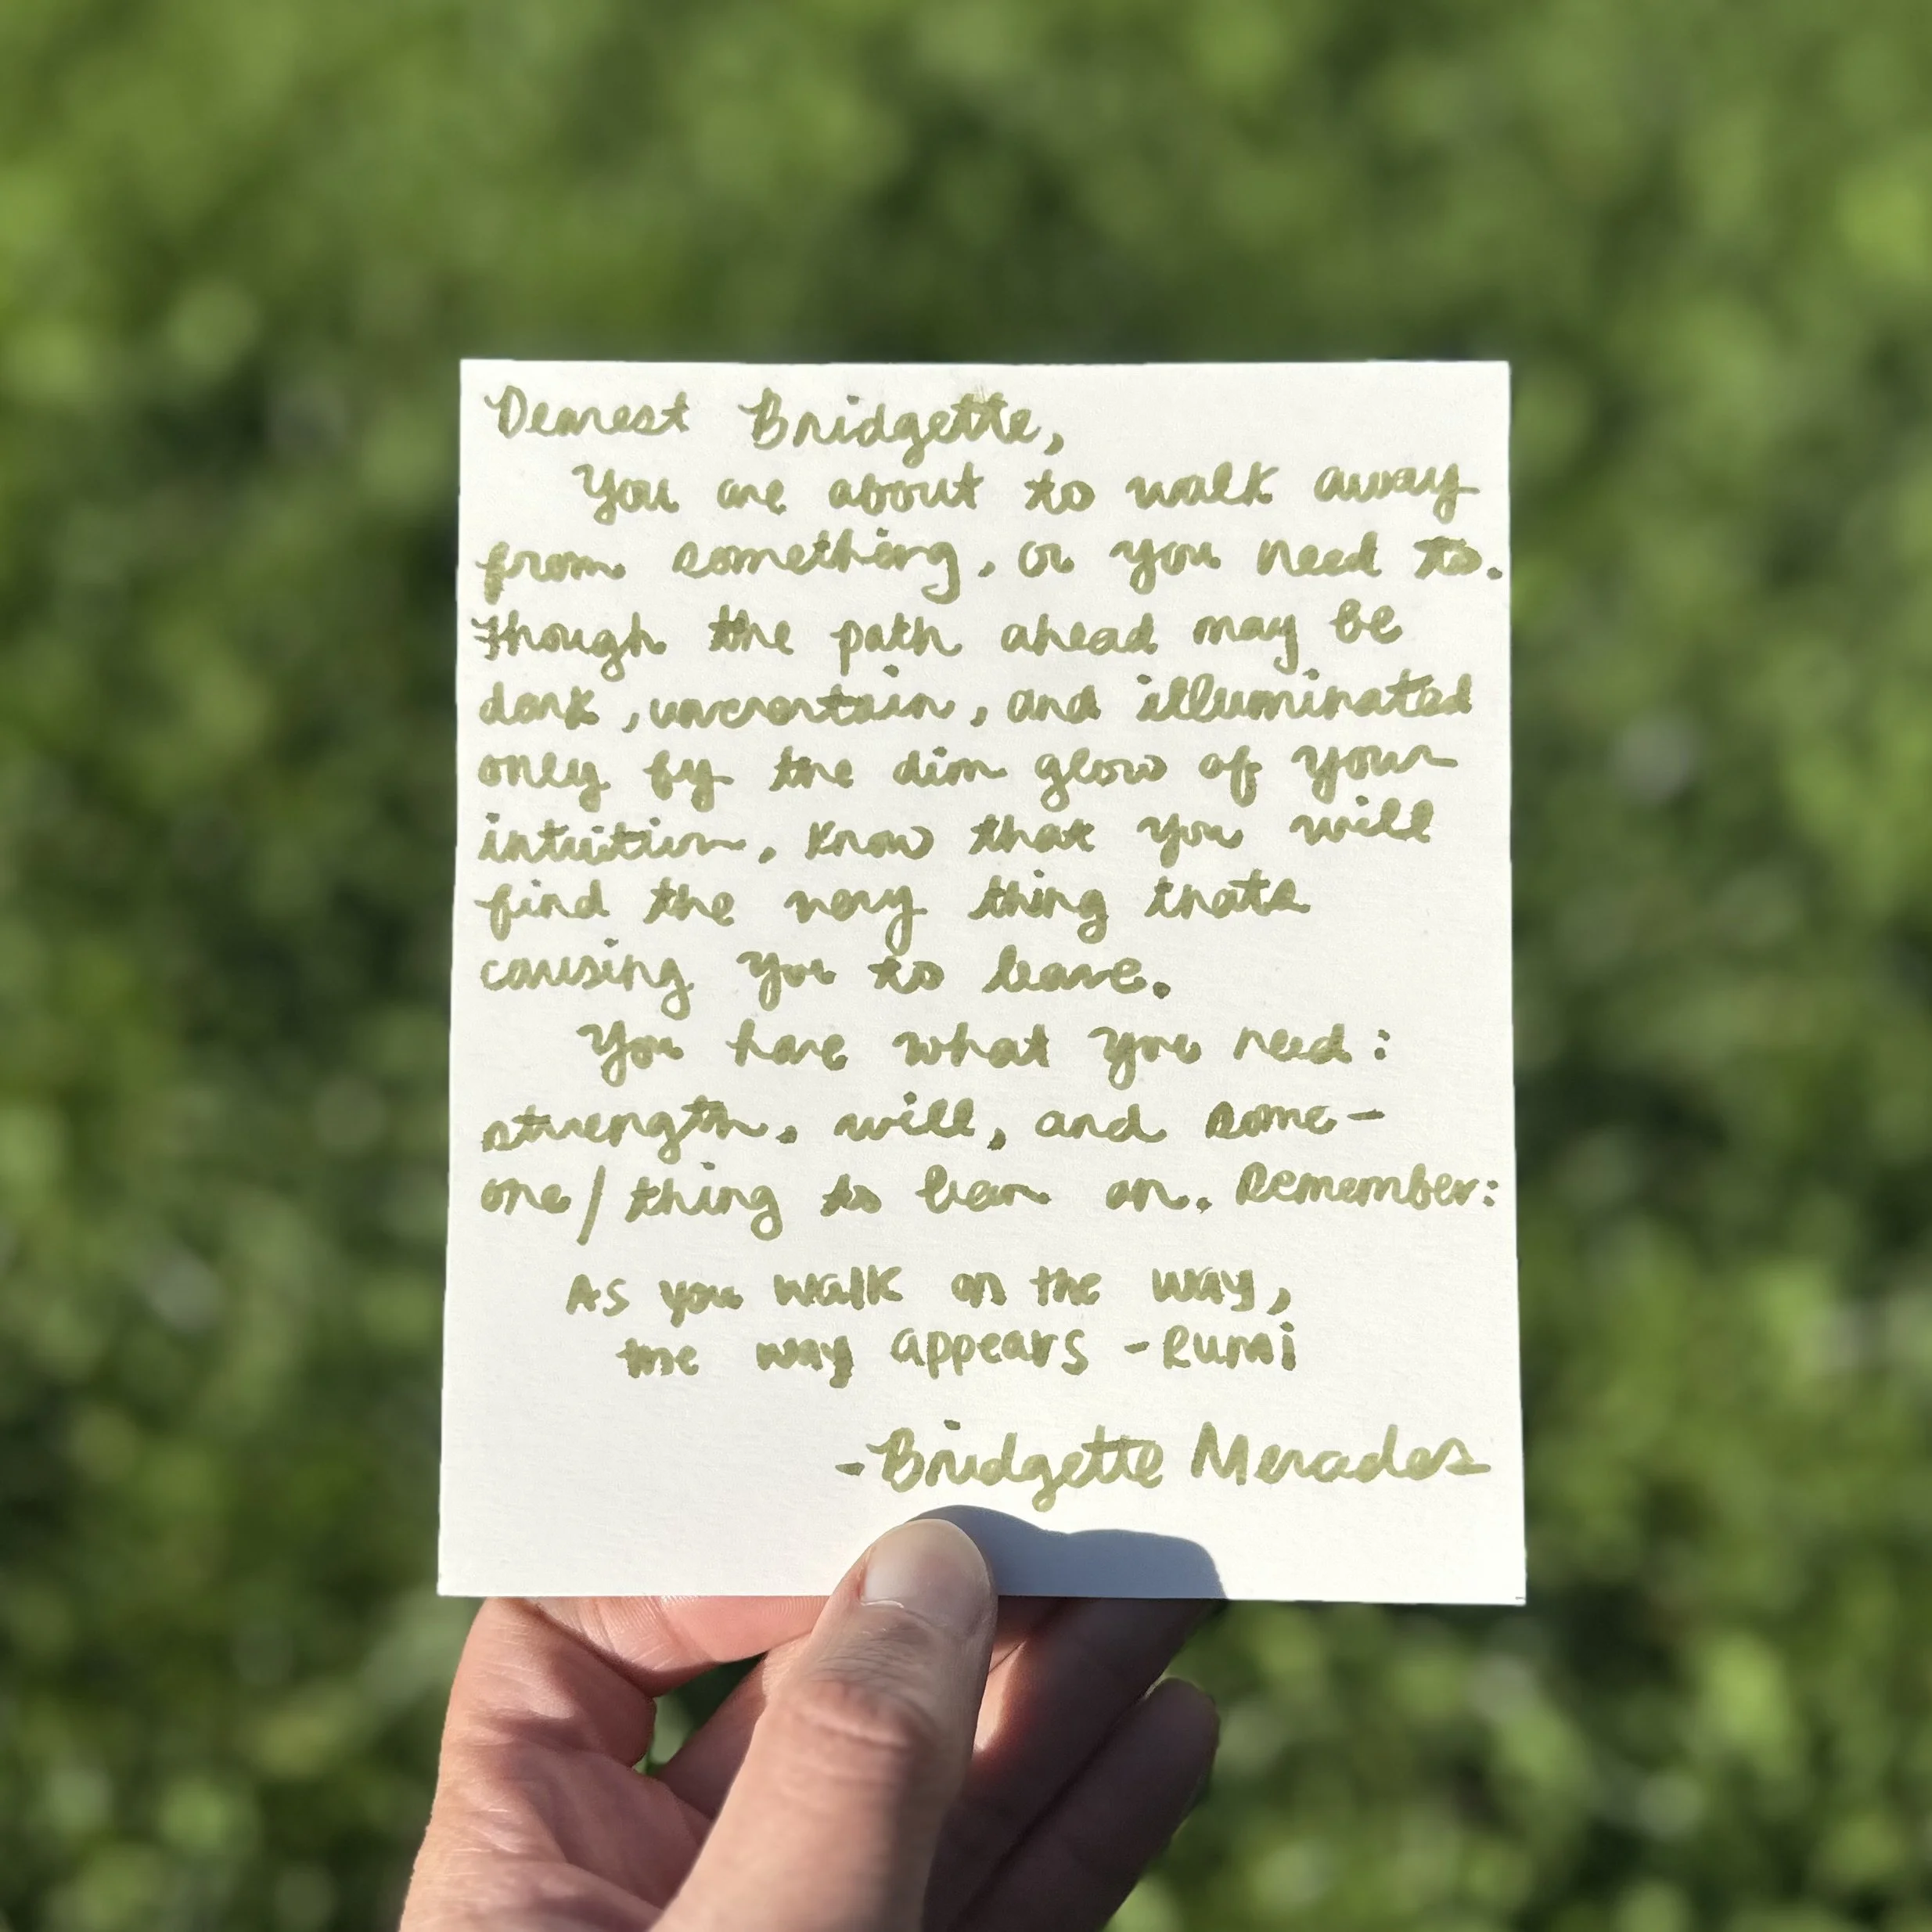 Dearest Bridgette,
You are about to walk away
from something, or you need to.
though the path ahead may be
dark, uncertain, and illuminated
only by the dim glow of your
intuition, know that you will
find the very thing thats
causing you to leave.
You have what you need:
strength, will, and some-
one/thing to lean on. Remember:
As you walk on the way,
the way appears - Rumi
- Bridgette Merados